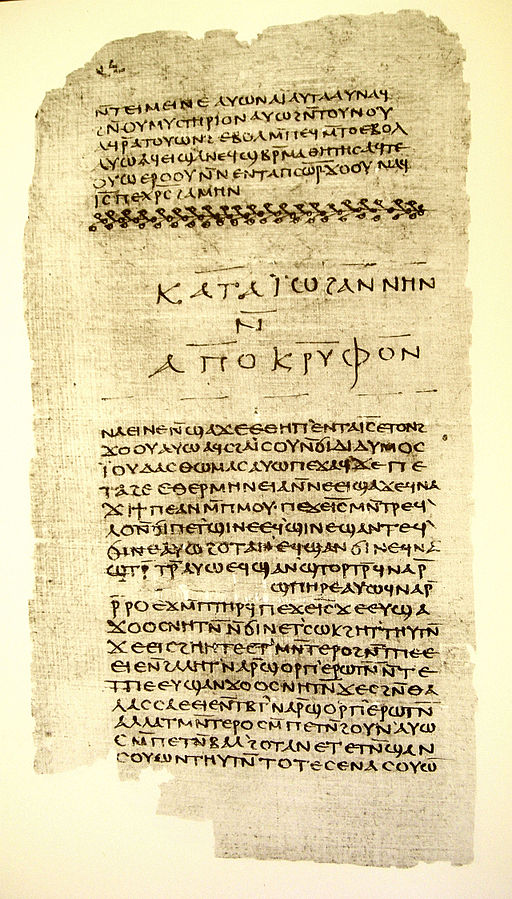 ⲛ̅ⲧⲉⲓⲙⲉⲓⲛⲉ ⲁⲩⲱ ⲛⲁⲓ̈ ⲁⲩⲧⲁⲁⲩ ⲛⲁϥ
ϩⲛ ⲟⲩⲙⲩⲥⲧⲏⲣⲓⲟⲛ ⲁⲩⲱ ϩⲛ̅ ⲧⲟⲩⲛⲟⲩ
ⲁϥⲣ̅ⲁⲧⲟⲩⲱⲛϩ ⲉⲃⲟⲗ ⲙ̅ⲡⲉϥⲙⲧⲟ ⲉⲃⲟⲗ
ⲁⲩⲱ ⲁϥⲉⲓ ϣⲁ ⲛⲉϥϣⲃⲣⲙⲁⲑⲏⲧⲏⲥ ⲁϥⲧⲉ
ⲟⲩⲱ ⲉⲣⲟⲟⲩ ⲛ̅ⲛⲉⲛⲧⲁⲡⲥⲱ̅ⲣ̅ ϫⲟⲟⲩ ⲛⲁϥ
ⲓ̅ⲥ̅ ⲡⲉⲭⲣ̅ⲥ̅ ϩⲁⲙⲏⲛ
ⲕⲁⲧⲁ ⲓ̈ⲱϩⲁⲛⲛⲏⲛ
ⲛ̅
ⲁⲡⲟⲕⲣⲩⲫⲟⲛ
ⲛⲁⲉⲓ ⲛⲉ ⲛ̅ϣⲁϫⲉ ⲉⲑⲏⲡ ⲉⲛⲧⲁⲓ̅ⲥ̅ ⲉⲧⲟⲛϩ
ϫⲟⲟⲩ ⲁⲩⲱ ⲁϥⲥϩⲁⲓ̈ⲥⲟⲩ ⲛ̅ϭⲓ ⲇⲓⲇⲩⲙⲟⲥ
ⲓ̈ⲟⲩⲇⲁⲥ ⲑⲱⲙⲁⲥ ⲁⲩⲱ ⲡⲉϫⲁϥ ϫⲉ ⲡⲉ
ⲧⲁϩⲉ ⲉⲑⲉⲣⲙⲏⲛⲉⲓⲁ ⲛ̅ⲛⲉⲉⲓϣⲁϫⲉ ϥⲛⲁ
ϫⲓ ϯⲡⲉ ⲁⲛ ⲙ̅ⲡⲙⲟⲩ ⲡⲉϫⲉ ⲓ̅ⲥ̅ ⲙⲛ̅ⲧⲣⲉϥ
ⲗⲟ ⲛ̅ϭⲓ ⲡⲉⲧϣⲓⲛⲉ ⲉϥϣⲓⲛⲉ ϣⲁⲛⲧⲉϥ
ϭⲓⲛⲉ ⲁⲩⲱ ϩⲟⲧⲁⲛ ⲉϥϣⲁⲛϭⲓⲛⲉ ϥⲛⲁ
ϣⲧⲣ̅ⲧⲣ̅ ⲁⲩⲱ ⲉϥϣⲁⲛϣⲧⲟⲣⲧⲣ̅ ϥⲛⲁⲣ̅
ϣⲡⲏⲣⲉ ⲁⲩⲱ ϥⲛⲁⲣ̅
ⲣ̅ⲣⲟ ⲉϫⲙ̅ ⲡⲧⲏⲣϥ ⲡⲉϫⲉ ⲓ̅ⲥ̅ ϫⲉ ⲉⲩϣⲁ
ϫⲟⲟⲥ ⲛⲏⲧⲛ̅ ⲛ̅ϭⲓ ⲛⲉⲧⲥⲱⲕ ϩⲏⲧ ⲧⲏⲩⲧⲛ̅
ϫⲉ ⲉⲓⲥ ϩⲏⲏⲧⲉ ⲉⲧⲙⲛ̅ⲧⲉⲣⲟ ϩⲛ̅ ⲧⲡⲉ ⲉ
ⲉⲓⲉ ⲛ̅ϩⲁⲗⲏⲧ ⲛⲁⲣ̅ ϣⲟⲣⲡ ⲉⲣⲱⲧⲛ̅ ⲛ̅ⲧⲉ
ⲧⲡⲉ ⲉⲩϣⲁⲛϫⲟⲟⲥ ⲛⲏⲧⲛ̅ ϫⲉ ⲥϩⲛ̅ ⲑⲁ
ⲗⲁⲥⲥⲁ ⲉⲉⲓⲉ ⲛ̅ⲧⲃ̅ⲧ ⲛⲁⲣ̅ ϣⲟⲣⲡ ⲉⲣⲱⲧⲛ̅
ⲁⲗⲗⲁ ⲧⲙⲛ̅ⲧⲉⲣⲟ ⲥⲙ̅ⲡⲉⲧⲛ̅ϩⲟⲩⲛ ⲁⲩⲱ
ⲥⲙ̅ⲡⲉⲧⲛ̅ⲃⲁⲗ ϩⲟⲧⲁⲛ ⲉⲧⲉⲧⲛ̅ϣⲁⲛ
ⲥⲟⲩⲱⲛ ⲧⲏⲩⲧⲛ̅ ⲧⲟⲧⲉ ⲥⲉⲛⲁⲥⲟⲩⲱ